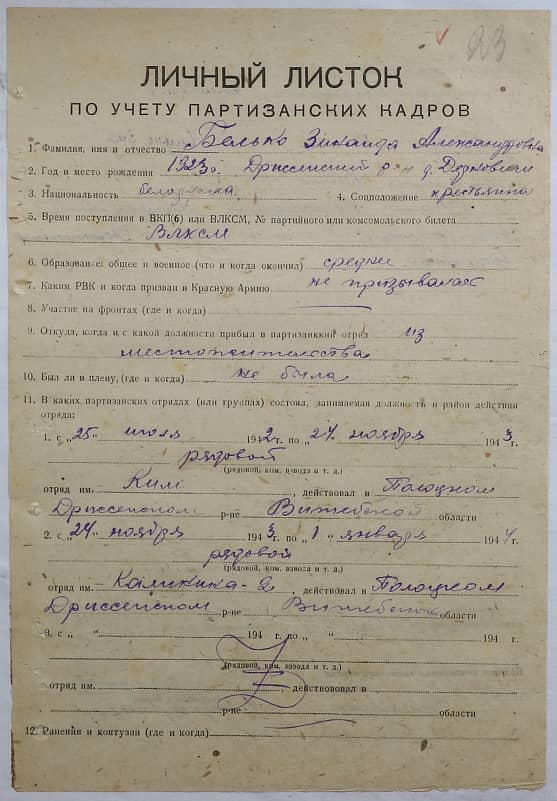 23
ЛИЧНЫЙ ЛИСТОК
ПО УЧЕТУ ПАРТИЗАНСКИХ КАДРОВ
1. Фамилия, имя и отчество Белько Зинаида Александровна
2. Год и место рождения 1923г. Дриссенский р-н д.
3. Национальность белоруска 4. Соцположение крестьянка
5. Время поступления в ВКП(б) или ВЛКСМ, № партийного или комсомольского билета
ВЛКСМ
6. Образование: общее и военное (что и когда окончил) средн
7. Каким РВК и когда призван в Красную Армию не призывалась
8. Участие на фронтах (где и когда)
9. Откуда, когда и с какой должности прибыл в партизанкий отряд из
местожительства
10. Был ли в плену, (где и когда) не была
11. В каких партизанских отрядах (или группах) состоял, занимаемая должность и район действия
отряда:
1. с „25" июля 1942 г. по „24 ноября 1943 г.
рядовой
(рядовой, ком. взвода и т. д.)
отряд им. Ким, действовал в Полоцком
Дриссенском р-не Витебской области
2. с „24" ноября 1943 г. по „1" января 1944 г.
рядовой
(рядовой, ком. взвода и т. д.)
отряд им. Калинина-2, действовал в Полоцком
Дриссенском р-не Витебской области
3. с „ " 194 г. по „ " 194 г.
(рядовой, ком. взвода и т. д.)
отряд им. , действововал в
р-не области
12. Ранения и контузии (где и когда)